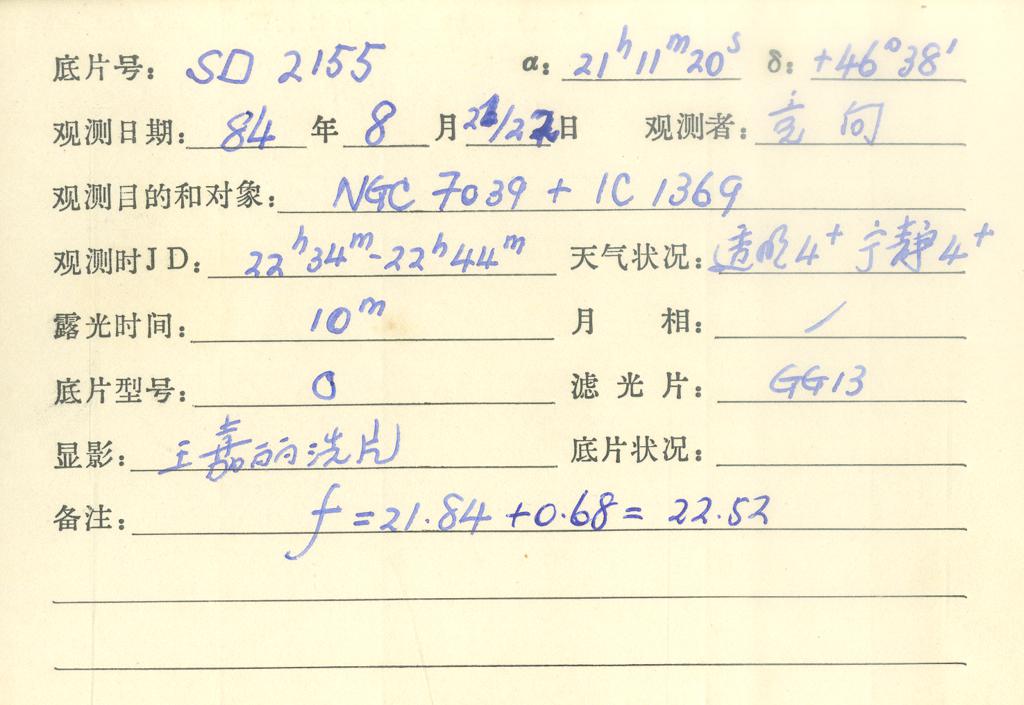 底片号: SD 2155 α: 21h11m20s δ: +46°38'
观测日期: 84 年 8 月 21/22 日 观测者: 竞 向
观测目的和对象: NGC 7039 + IC 1369
观测时JD: 22h34m-22h44m 天气状况: 透明4+ 宁静4+
露光时间: 10m 月 相: /
底片型号: O 滤光片: GG13
显影: 王嘉丽洗片 底片状况:
备注: f=21.84+0.68=22.52